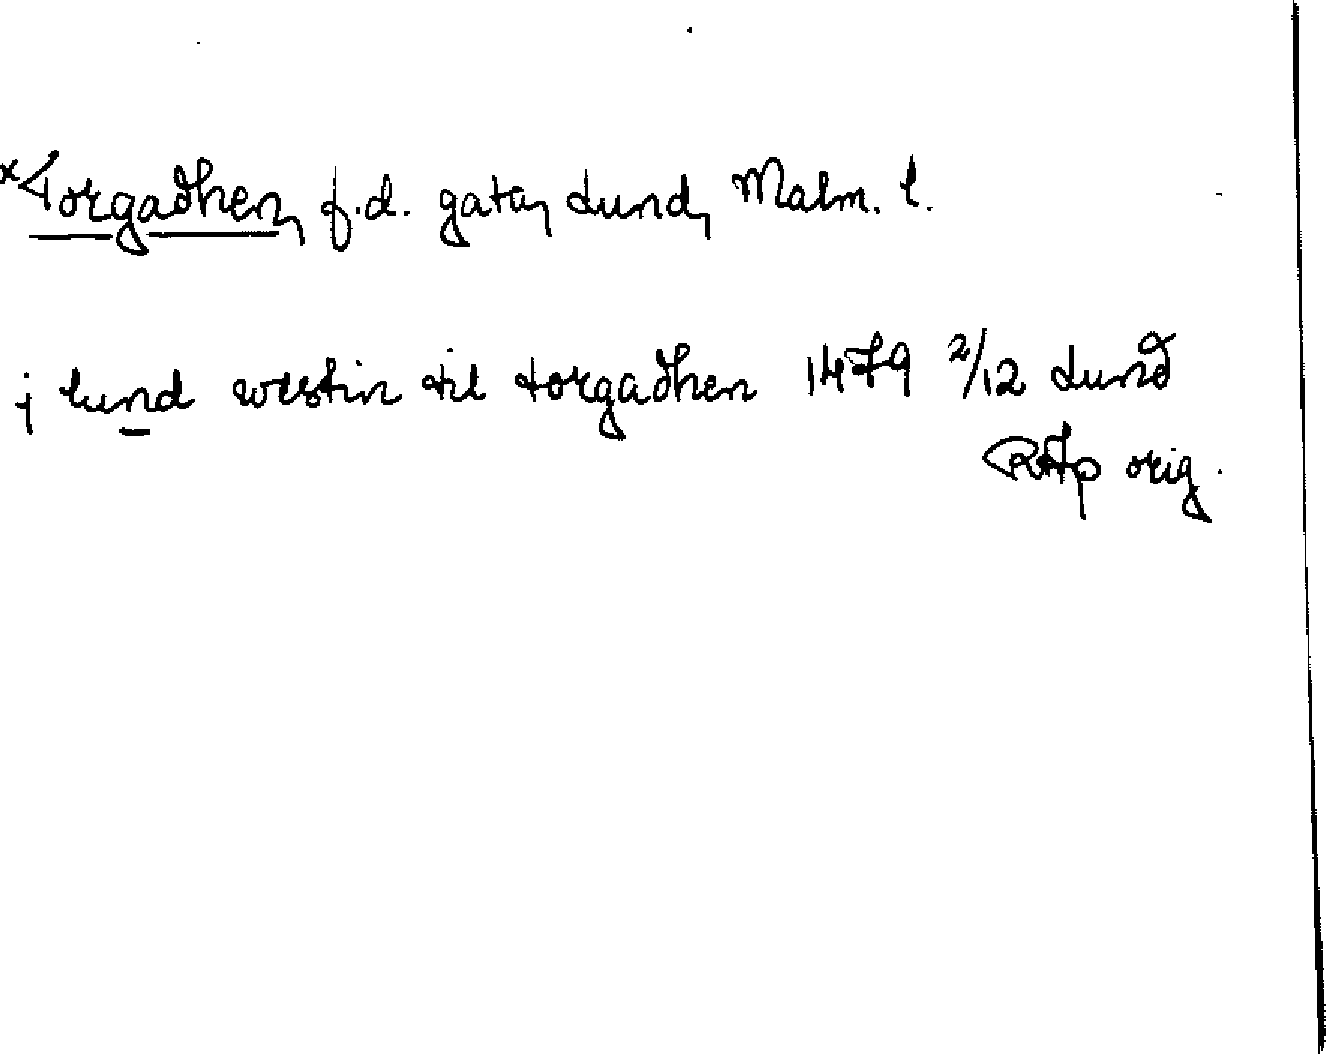 ×Torgadhen, f.d. gata, Lund, Malm. l.
j lund westin til torgadhen 1479 2/12 Lund
RAp orig.